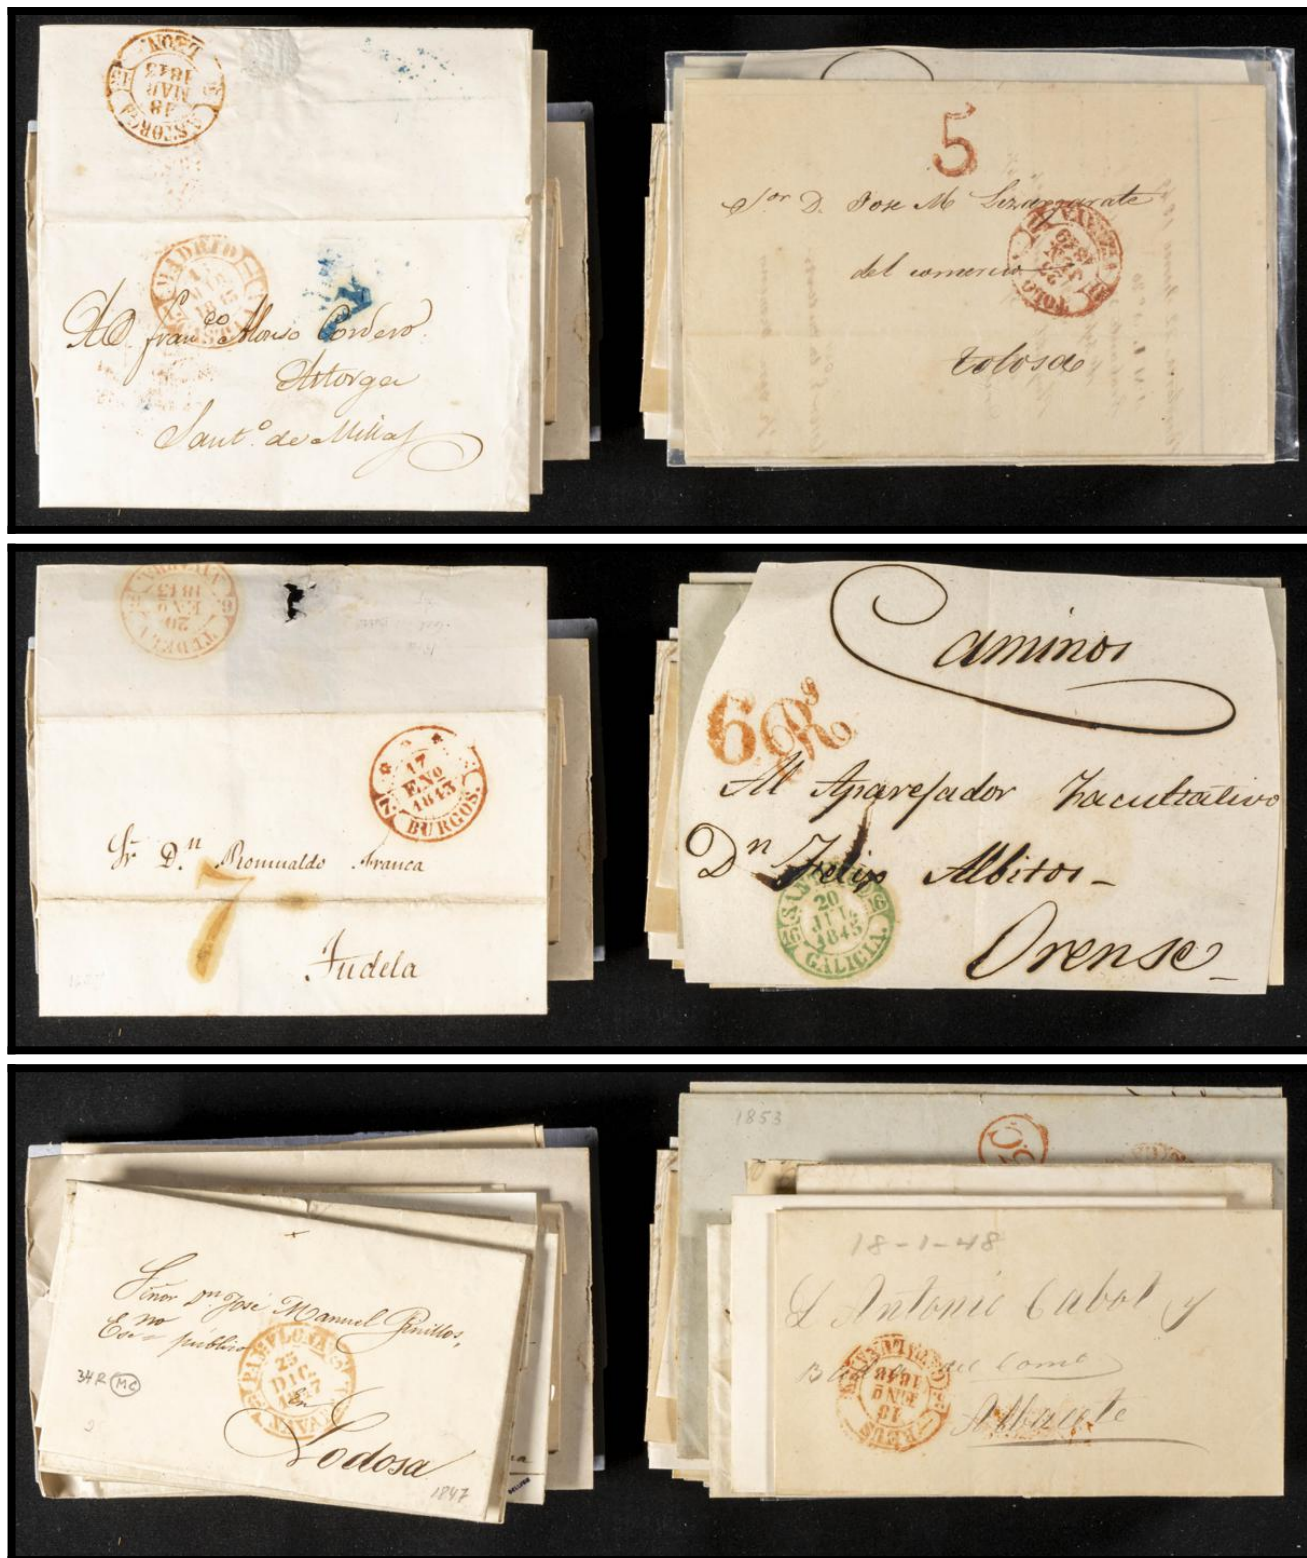 ASTORGA
18
MAR
1843
LEON
MADRID
1843
A D. Fran.co Alonso Cordero.
Astorga
Sant.o de Millas
5
Sor D. Jose M Lizarzarate
del comercio
Tolosa
TUDELA
20
ENO
1843
NAVARRA
17
ENO
1843
BURGOS.
Sr. D.n Romualdo Franca
7
Tudela
Caminos
6 Rs
Al Aparejador Facultativo
Dn Felip Albitos -
20
JUL
1845
GALICIA.
16
16
Orense
Señor Dn. José Manuel Pinillos,
Esno público
PAMPLONA
25
DIC.
1847
34 R MC
en
Lodosa
1847
1853
18-1-48
D Antonio Cabot y
REUS
18
ENO
1848
Albacete